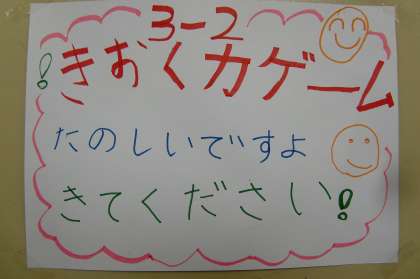 3-2
!きおく力ゲーム
たのしいですよ
きてください!